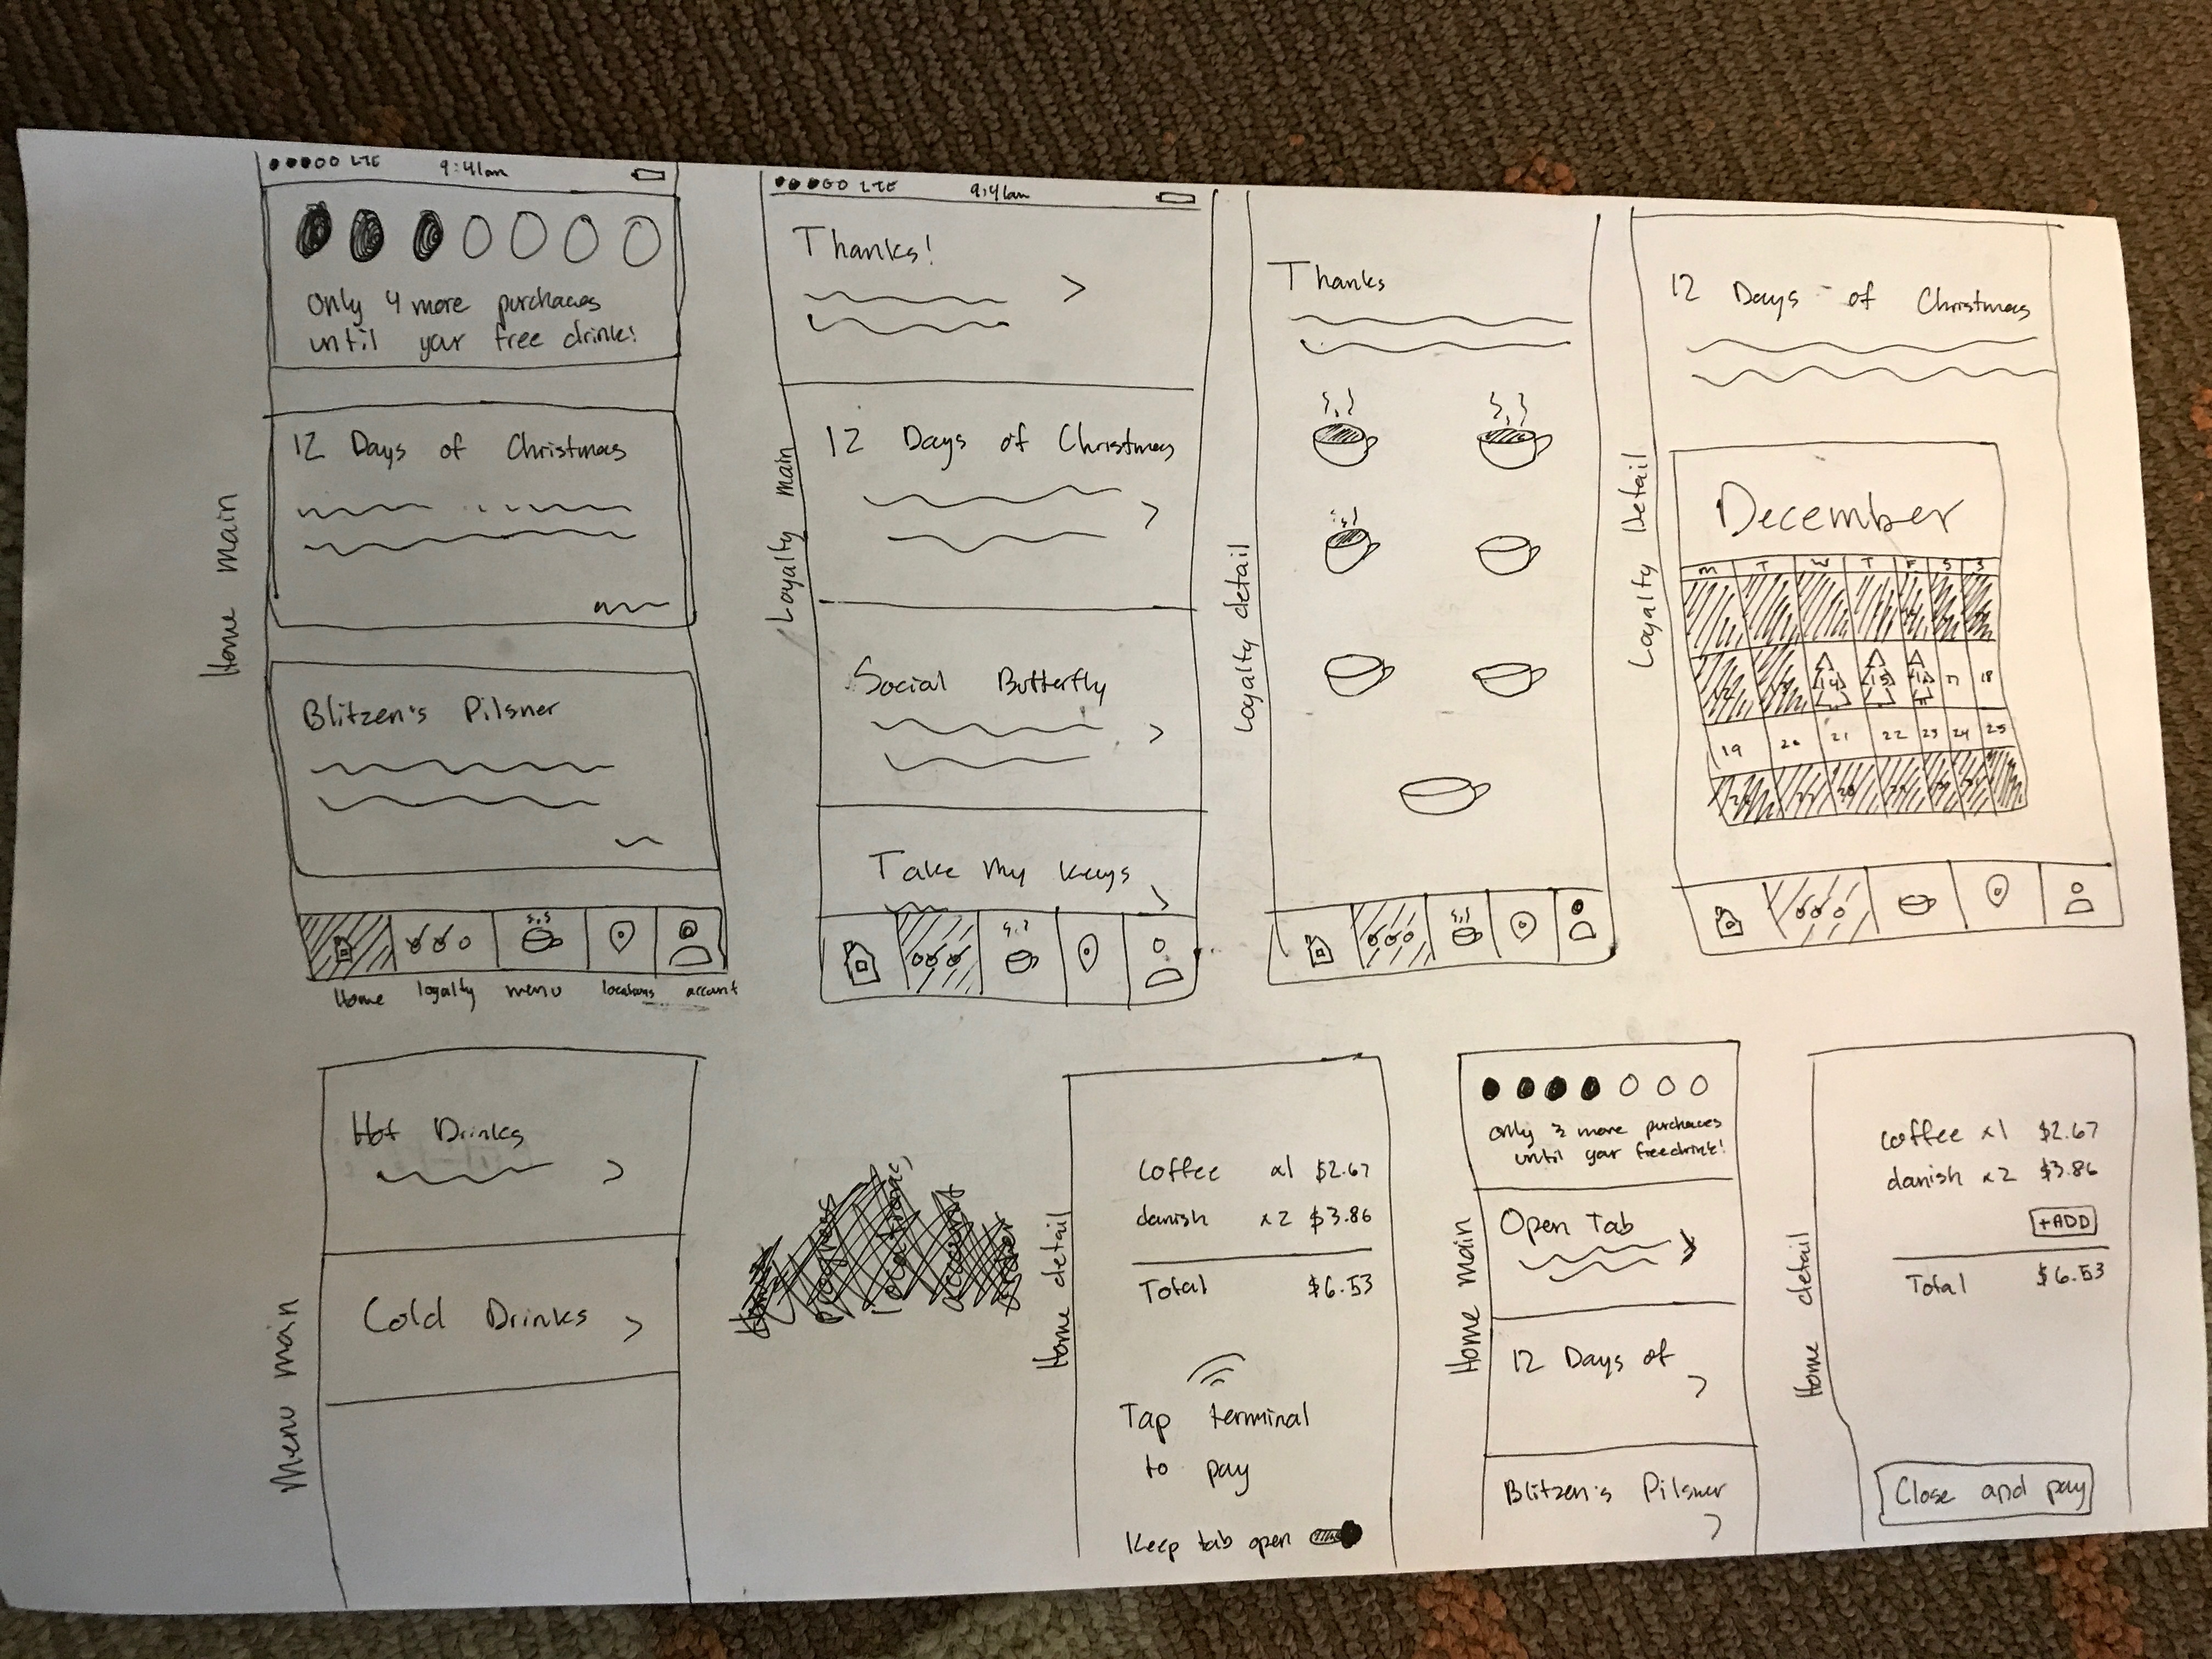 Home main
LTE 9:41am
Only 4 more purchases
until your free drink!
12 Days of Christmas
Blitzen's Pilsner
Home loyalty menu locations account
Loyalty main
LTE 9:41am
Thanks!
12 Days of Christmas
Social Butterfly
Take my keys
Loyalty detail
Thanks
Loyalty Detail
12 Days of Christmas
December
M T W T F S S
14 15 16 17 18
19 20 21 22 23 24 25
Menu main
Hot Drinks
Cold Drinks
Home detail
coffee x1 $2.67
danish x2 $3.86
Total $6.53
Tap terminal
to pay
Keep tab open
Home main
Only 3 more purchases
until your free drink!
Open Tab
12 Days of
Blitzen's Pilsner
Home detail
coffee x1 $2.67
danish x2 $3.86
+ADD
Total $6.53
Close and pay